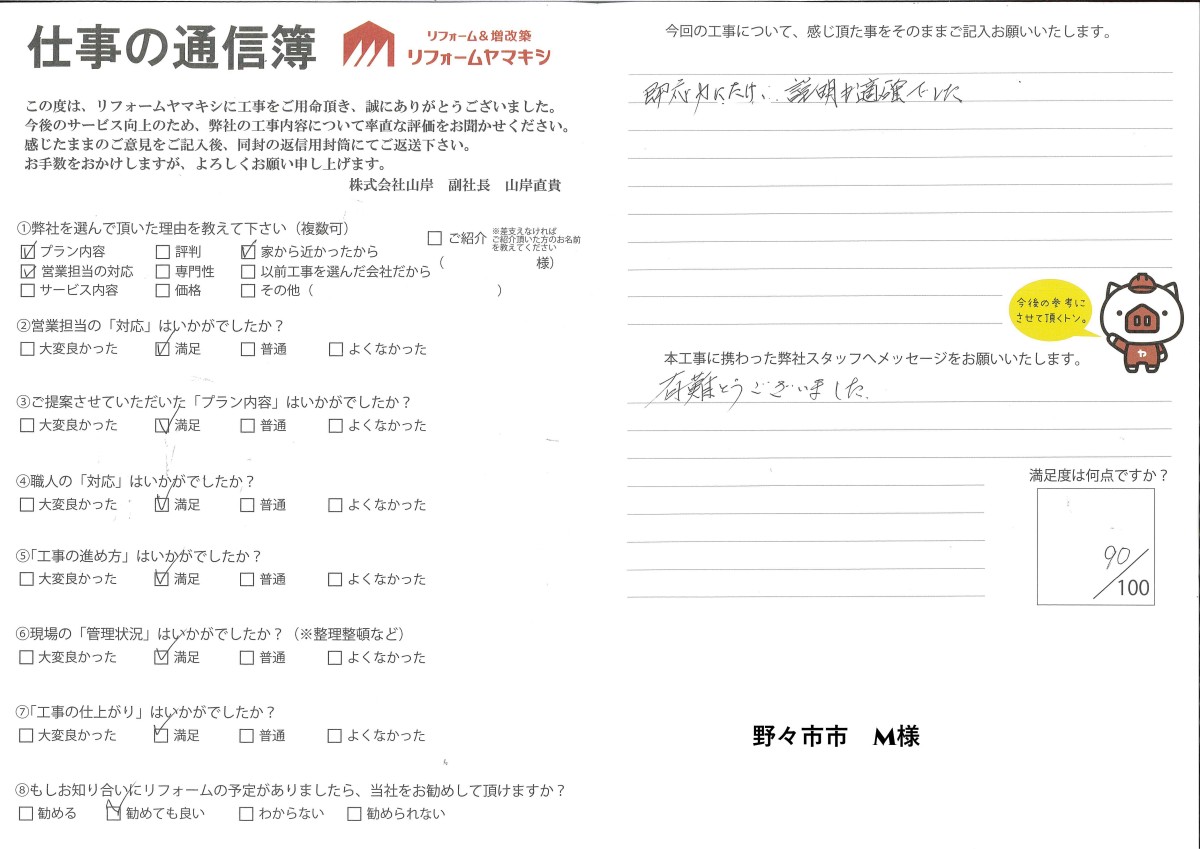 仕事の通信簿
リフォーム&増改築
リフォームヤマキシ
この度は、リフォームヤマキシに工事をご用命頂き、誠にありがとうございました。
今後のサービス向上のため、弊社の工事内容について率直な評価をお聞かせください。
感じたままのご意見をご記入後、同封の返信用封筒にてご返送下さい。
お手数をおかけしますが、よろしくお願い申し上げます。
株式会社山岸 副社長 山岸直貴
①弊社を選んで頂いた理由を教えて下さい（複数可）
☑プラン内容 □評判 ☑家から近かったから
☑営業担当の対応 □専門性 □以前工事を選んだ会社だから
□サービス内容 □価格 □その他（ ）
□ご紹介 ※差支えなければ
ご紹介頂いた方のお名前
を教えてください
（ 様）
②営業担当の「対応」はいかがでしたか？
□大変良かった ☑満足 □普通 □よくなかった
③ご提案させていただいた「プラン内容」はいかがでしたか？
□大変良かった ☑満足 □普通 □よくなかった
④職人の「対応」はいかがでしたか？
□大変良かった ☑満足 □普通 □よくなかった
⑤「工事の進め方」はいかがでしたか？
□大変良かった ☑満足 □普通 □よくなかった
⑥現場の「管理状況」はいかがでしたか？（※整理整頓など）
□大変良かった ☑満足 □普通 □よくなかった
⑦「工事の仕上がり」はいかがでしたか？
□大変良かった ☑満足 □普通 □よくなかった
⑧もしお知り合いにリフォームの予定がありましたら、当社をお勧めして頂けますか？
□勧める ☑勧めても良い □わからない □勧められない
今回の工事について、感じ頂た事をそのままご記入お願いいたします。
即応いただけ、説明も適確でした
今後の参考に
させて頂くトン。
ヤ
本工事に携わった弊社スタッフへメッセージをお願いいたします。
有難とうございました.
満足度は何点ですか？
90/100
野々市市 M様